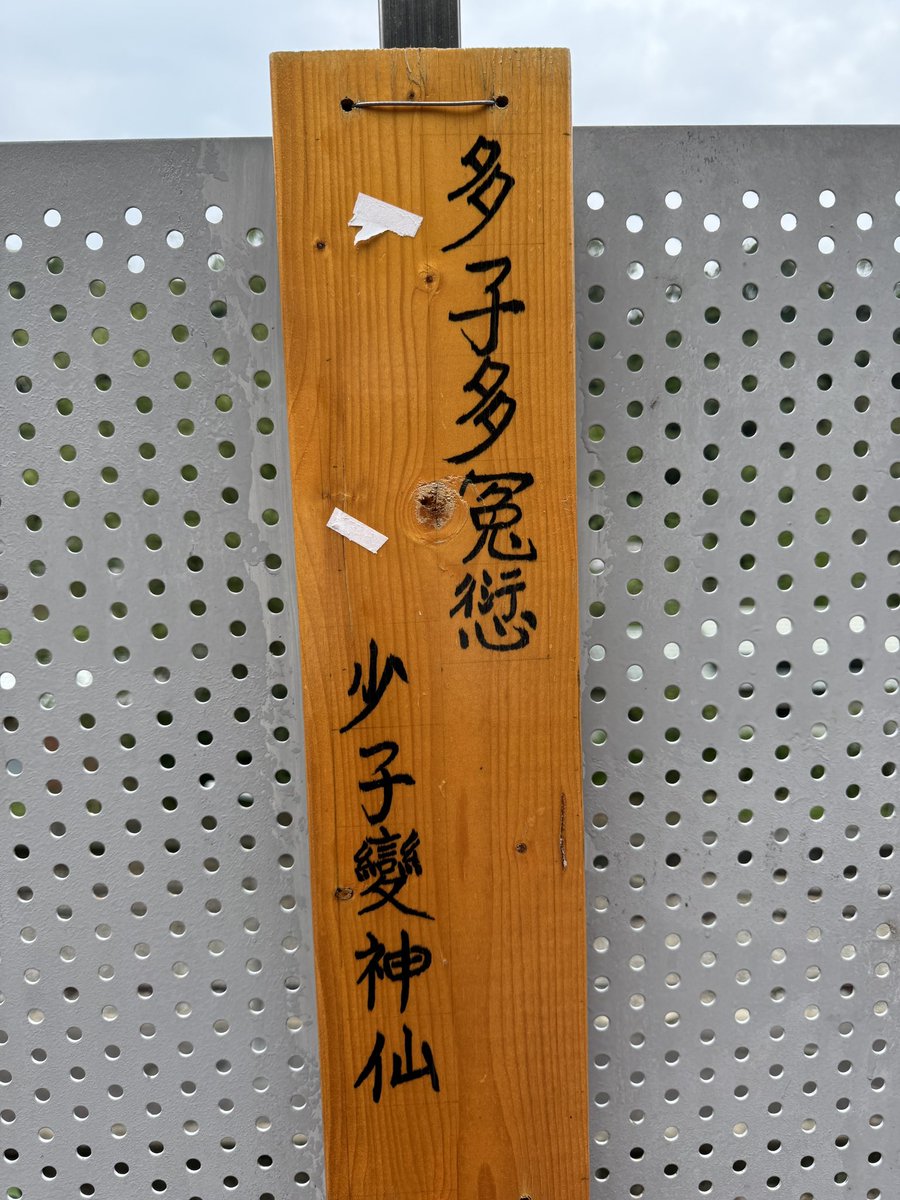 多子多冤愆
少子變神仙